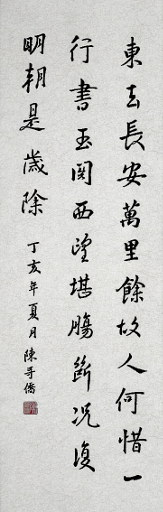 東去長安萬里餘故人何惜一
行書玉関西望堪腸斷況復
明朝是歲除
丁亥年夏月陳哥僑